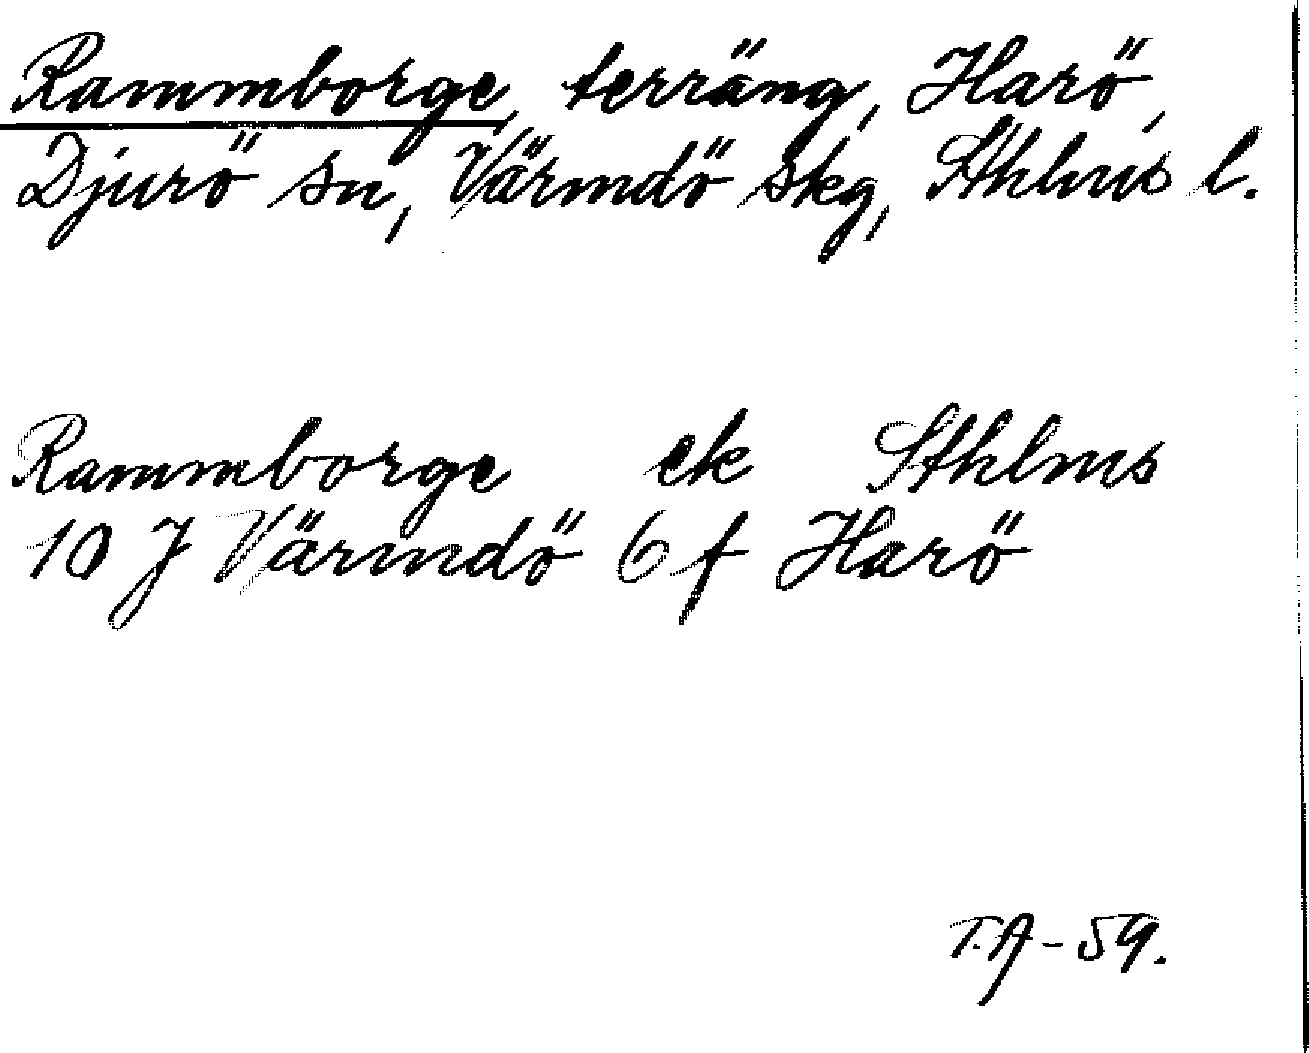 Rammborge, terräng, Harö,
Djurö sn, Värmdö skg, Sthlms l.
Rammborge ek Sthlms
10 J Värmdö 6 f Harö
T.A - 59.